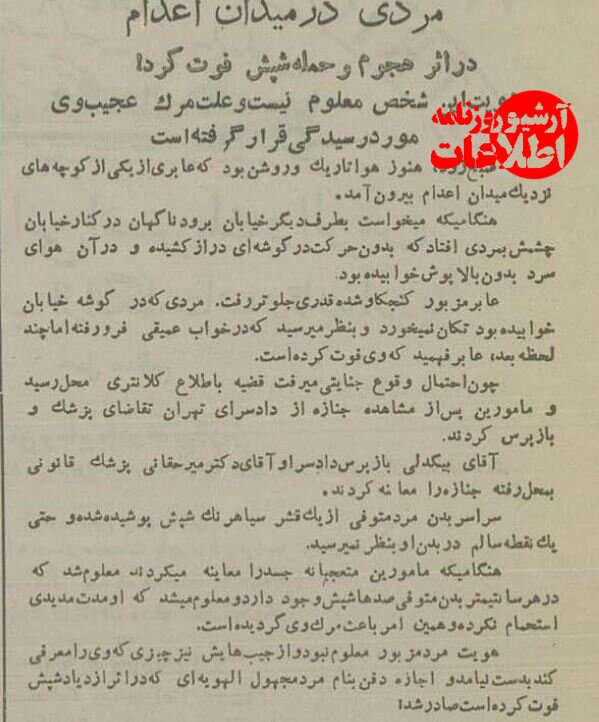 مردی در میدان اعدام
در اثر هجوم و حمله شپش فوت کرد!
هویت این شخص معلوم نیست و علت مرگ عجیب وی
مورد رسیدگی قرار گرفته است
آرشیو روزنامه
اطلاعات
صبح زود، هنوز هوا تاریك و روشن بود که عابری از یکی از کوچه های
نزدیك میدان اعدام بیرون آمد.
هنگامیکه میخواست بطرف دیگر خیابان برود ناگهان در کنار خیابان
چشمش بمردی افتاد که بدون حرکت در گوشه ای دراز کشیده و در آن هوای
سرد بدون بالاپوش خوابیده بود.
عابر مزبور کنجکاو شده قدری جلوتر رفت. مردی که در گوشه خیابان
خوابیده بود تکان نمیخورد و بنظر میرسید که در خواب عمیقی فرو رفته اما چند
لحظه بعد، عابر فهمید که وی فوت کرده است.
چون احتمال وقوع جنایتی میرفت قضیه باطلاع کلانتری محل رسید
و مامورین پس از مشاهده جنازه از دادسرای تهران تقاضای پزشك و
بازپرس کردند.
آقای بیگدلی بازپرس دادسرا و آقای دکتر میرحقانی پزشك قانونی
بمحل رفته جنازه را معاینه کردند.
سراسر بدن مرد متوفی از یك قشر سیاهرنك شپش پوشیده شده و حتی
یك نقطه سالم در بدن او بنظر نمیرسید.
هنگامیکه مامورین متعجبانه جسد را معاینه میکردند معلوم شد که
در هر سانتیمتر بدن متوفی صدها شپش وجود دارد و معلوم میشد که او مدت مدیدی
استحمام نکرده و همین امر باعث مرك وی گردیده است.
هویت مرد مزبور معلوم نبود و از جیب هایش نیز چیزی که وی را معرفی
کند بدست نیامد و اجازه دفن بنام مرد مجهول الهویه ای که در اثر ازدیاد شپش
فوت کرده است صادر شد!